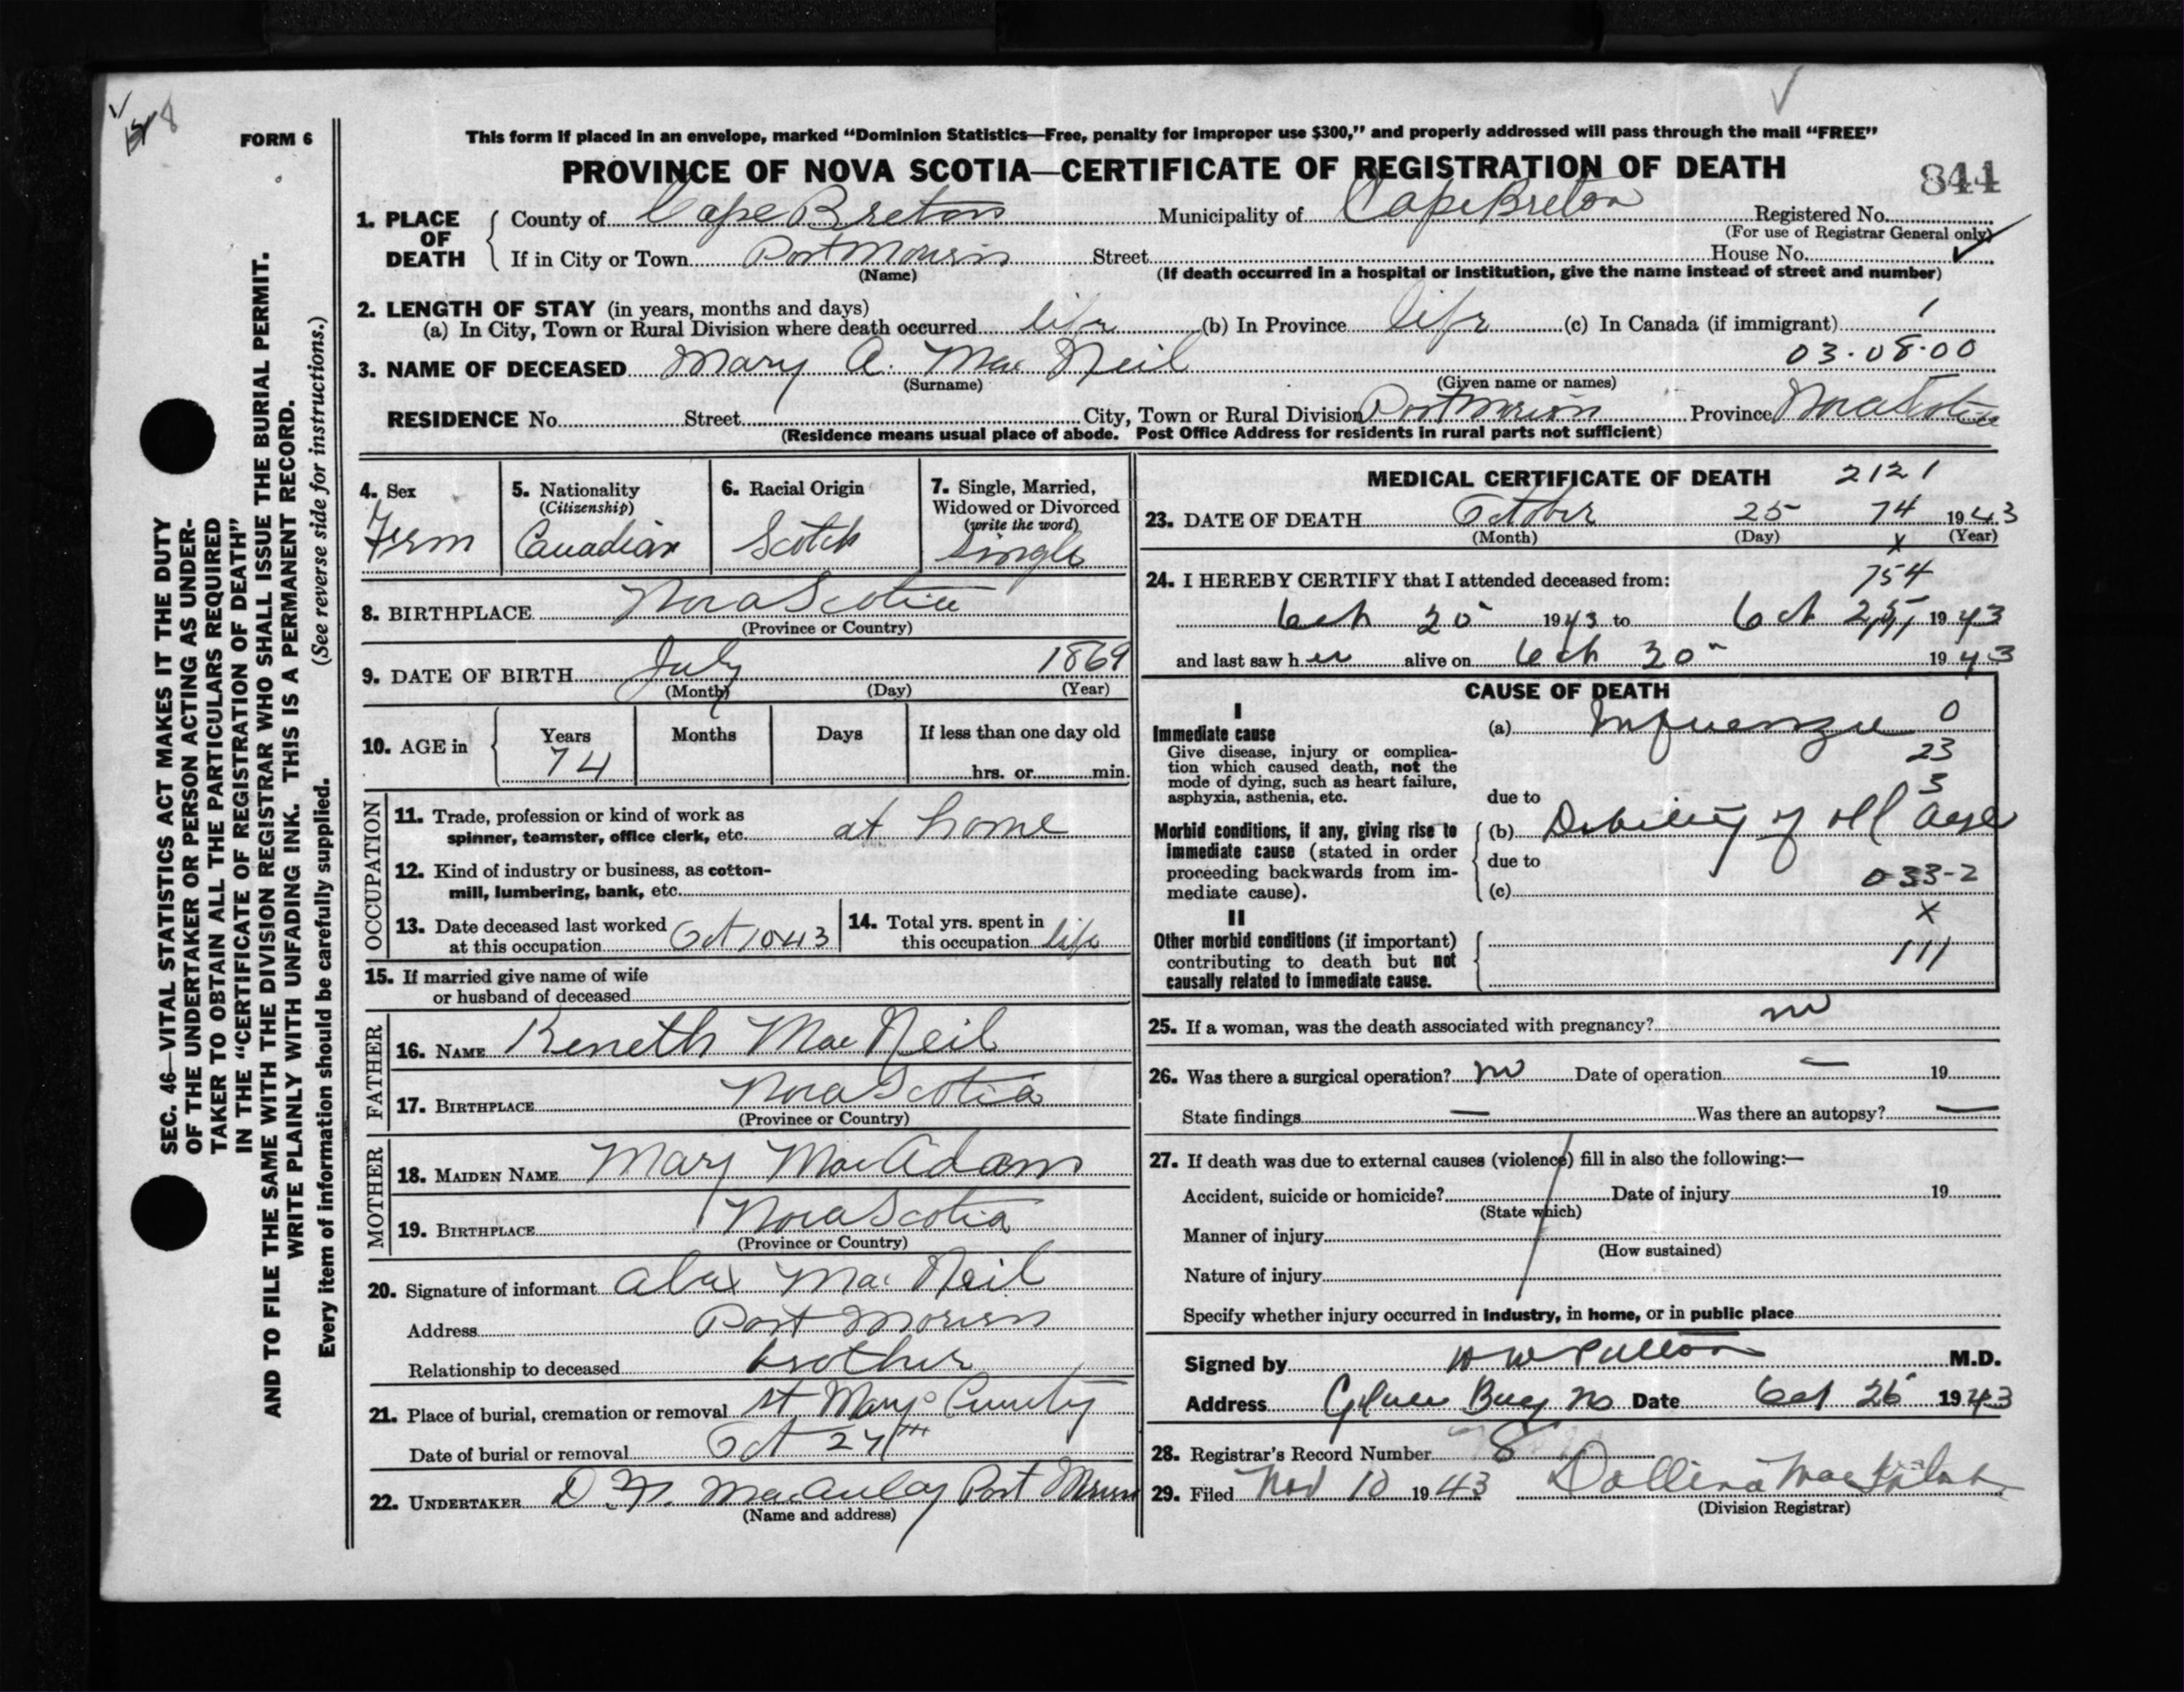 FORM 6
This form if placed in an envelope, marked “Dominion Statistics—Free, penalty for improper use $300,” and properly addressed will pass through the mail “FREE”
PROVINCE OF NOVA SCOTIA—CERTIFICATE OF REGISTRATION OF DEATH
844
1. PLACE OF DEATH
County of Cape Breton Municipality of Cape Breton Registered No.
(For use of Registrar General only)
If in City or Town Port Morien Street House No.
(Name) (If death occurred in a hospital or institution, give the name instead of street and number)
2. LENGTH OF STAY (in years, months and days)
(a) In City, Town or Rural Division where death occurred life (b) In Province life (c) In Canada (if immigrant)
03·08·00
3. NAME OF DECEASED Mary A. Mac Neil
(Surname) (Given name or names)
RESIDENCE No. Street City, Town or Rural Division Port Morien Province Nova Scotia
(Residence means usual place of abode. Post Office Address for residents in rural parts not sufficient)
4. Sex
Fem
5. Nationality
(Citizenship)
Canadian
6. Racial Origin
Scotch
7. Single, Married,
Widowed or Divorced
(write the word)
Single
8. BIRTHPLACE Nova Scotia
(Province or Country)
9. DATE OF BIRTH July 1869
(Month) (Day) (Year)
10. AGE in
Years Months Days If less than one day old
74 hrs. or min.
OCCUPATION
11. Trade, profession or kind of work as
spinner, teamster, office clerk, etc. at home
12. Kind of industry or business, as cotton-
mill, lumbering, bank, etc.
13. Date deceased last worked
at this occupation Oct 1043
14. Total yrs. spent in
this occupation life
15. If married give name of wife
or husband of deceased
FATHER
16. NAME Keneth Mac Neil
17. BIRTHPLACE Nova Scotia
(Province or Country)
MOTHER
18. MAIDEN NAME Mary MacAdam
19. BIRTHPLACE Nova Scotia
(Province or Country)
20. Signature of informant Alex Mac Neil
Address Port Morien
Relationship to deceased brother
21. Place of burial, cremation or removal St Mary's
Date of burial or removal Oct 27th
22. UNDERTAKER MacAulay Port Morien
(Name and address)
MEDICAL CERTIFICATE OF DEATH 2121
23. DATE OF DEATH October 25 74 1943
(Month) (Day) X (Year)
24. I HEREBY CERTIFY that I attended deceased from: 754
Oct 20 1943 to Oct 25, 1943
and last saw her alive on Oct 20 1943
CAUSE OF DEATH
I
Immediate cause
Give disease, injury or complica-
tion which caused death, not the
mode of dying, such as heart failure,
asphyxia, asthenia, etc.
(a) Influenza 0
23
3
due to
Morbid conditions, if any, giving rise to
immediate cause (stated in order
proceeding backwards from im-
mediate cause).
(b) Debility of old age
due to
(c) 033-2
X
II
Other morbid conditions (if important)
contributing to death but not
causally related to immediate cause.
111
25. If a woman, was the death associated with pregnancy? no
26. Was there a surgical operation? no Date of operation — 19
State findings — Was there an autopsy? —
27. If death was due to external causes (violence) fill in also the following:—
Accident, suicide or homicide? Date of injury 19
(State which)
Manner of injury
(How sustained)
Nature of injury
Specify whether injury occurred in industry, in home, or in public place
Signed by M.D.
Address Bay NS Date Oct 26 1943
28. Registrar's Record Number 8
29. Filed Nov 10 1943 Dollina
(Division Registrar)
SEC. 46—VITAL STATISTICS ACT MAKES IT THE DUTY
OF THE UNDERTAKER OR PERSON ACTING AS UNDER-
TAKER TO OBTAIN ALL THE PARTICULARS REQUIRED
IN THE “CERTIFICATE OF REGISTRATION OF DEATH”
AND TO FILE THE SAME WITH THE DIVISION REGISTRAR WHO SHALL ISSUE THE BURIAL PERMIT.
WRITE PLAINLY WITH UNFADING INK. THIS IS A PERMANENT RECORD.
Every item of information should be carefully supplied. (See reverse side for instructions.)